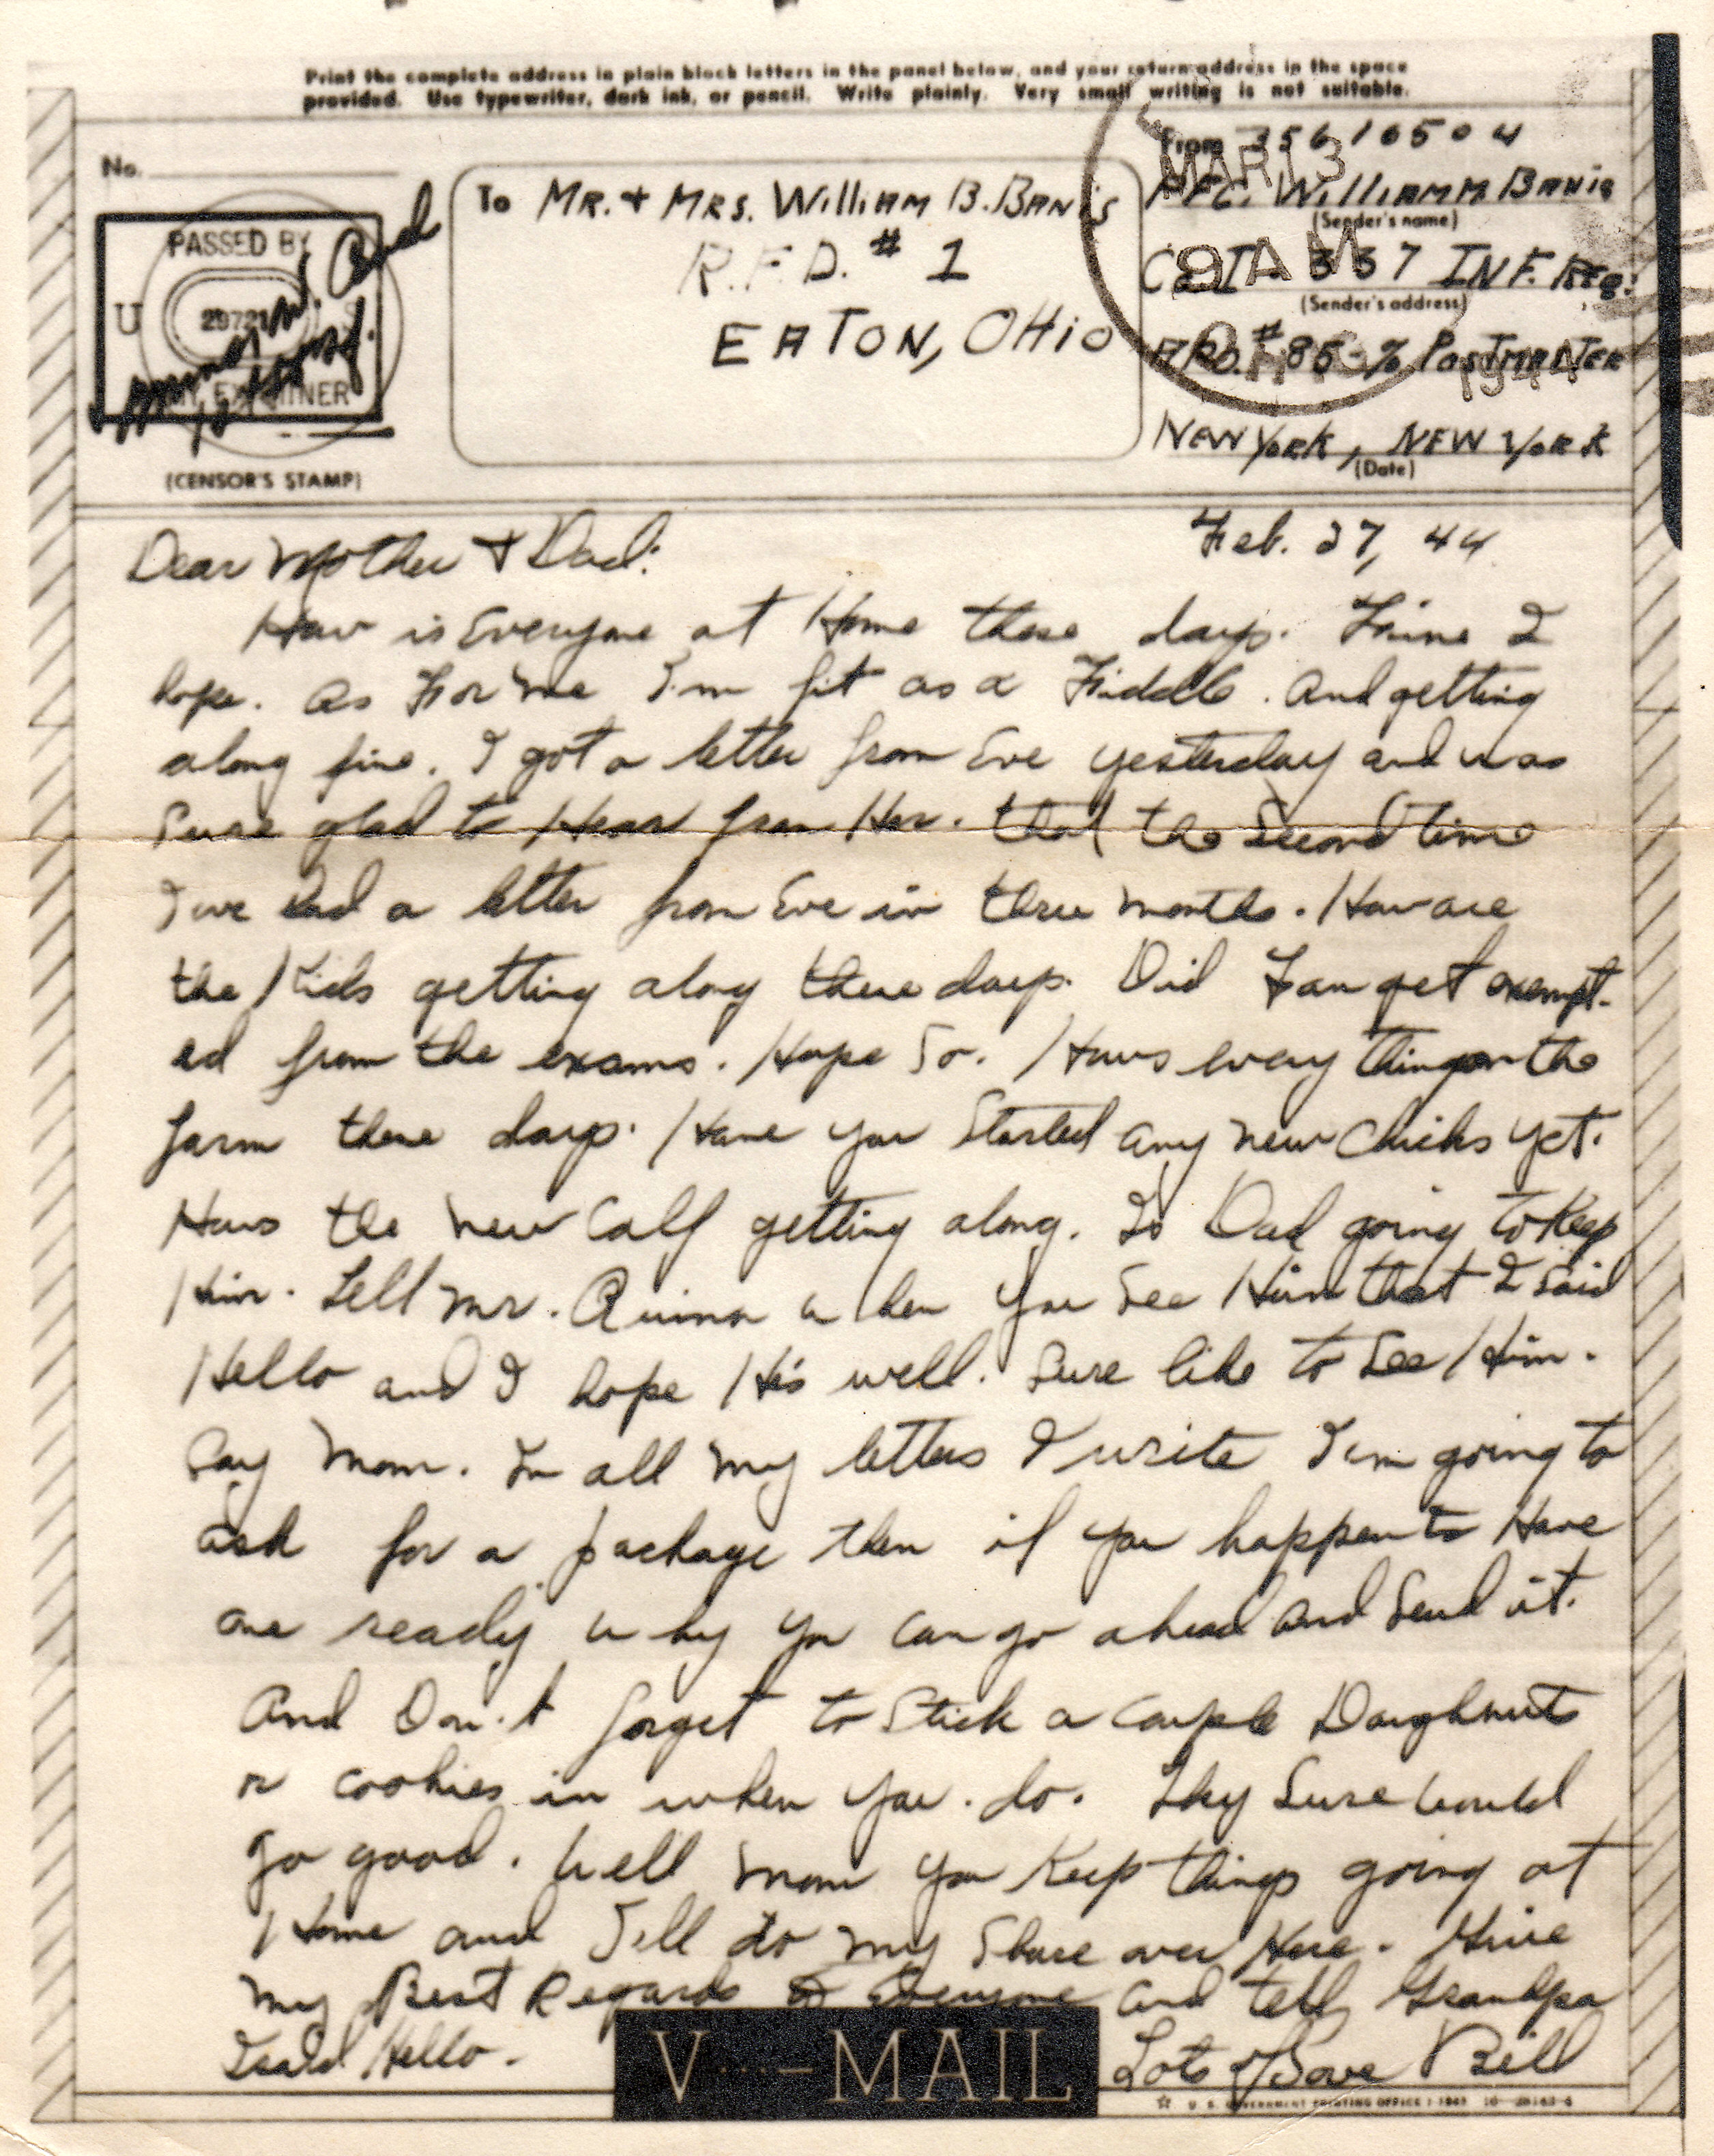 Print the complete address in plain block letters in the panel below, and your return address in the space
provided. Use typewriter, dark ink, or pencil. Write plainly. Very small writing is not suitable.
No.
PASSED BY
U S
ARMY EXAMINER
(CENSOR'S STAMP)
To MR. + MRS. WilliAM B. BANIS
R.F.D. # 1
EATON, OHiO
From 35616504
PFC. WilliAM M BANIS
(Sender's name)
337 INF. REG.
(Sender's address)
APO. # 85 - % PostMASTER
NEW York, NEW York
(Date)
MAR 13
9 AM
1944
Feb. 27, 44
Dear Mother + Dad:
How is Everyone at Home these days. Fine I
hope. As For me I'm fit as a Fiddle. And getting
along fine. I got a letter from Eve yesterday and was
Sure glad to Hear from Her. that the Second time
I've had a letter from Eve in three months. How are
the Kids getting along these days. Did get exempt-
ed from the exams. Hope So. Hows every thing on the
farm these days. Have you Started any new chicks yet.
Hows the new Calf getting along. Is Dad going to Keep
Him. Tell Mr. when you See Him that I Said
Hello and I hope He's well. Sure like to See Him.
Say Mom. In all my letters I write I'm going to
ask for a package then if you happen to Have
one ready why you can go ahead and Send it.
And Don't forget to Stick a couple Doughnuts
or cookies in when you. do. They Sure would
go good. Well Mom you Keep things going at
Home and I'll do my Share over Here. Give
my Best Regards to Everyone and tell Grandpa
I said Hello.
Lots of Love Bill
V...-MAIL
☆ U. S. GOVERNMENT PRINTING OFFICE : 1943